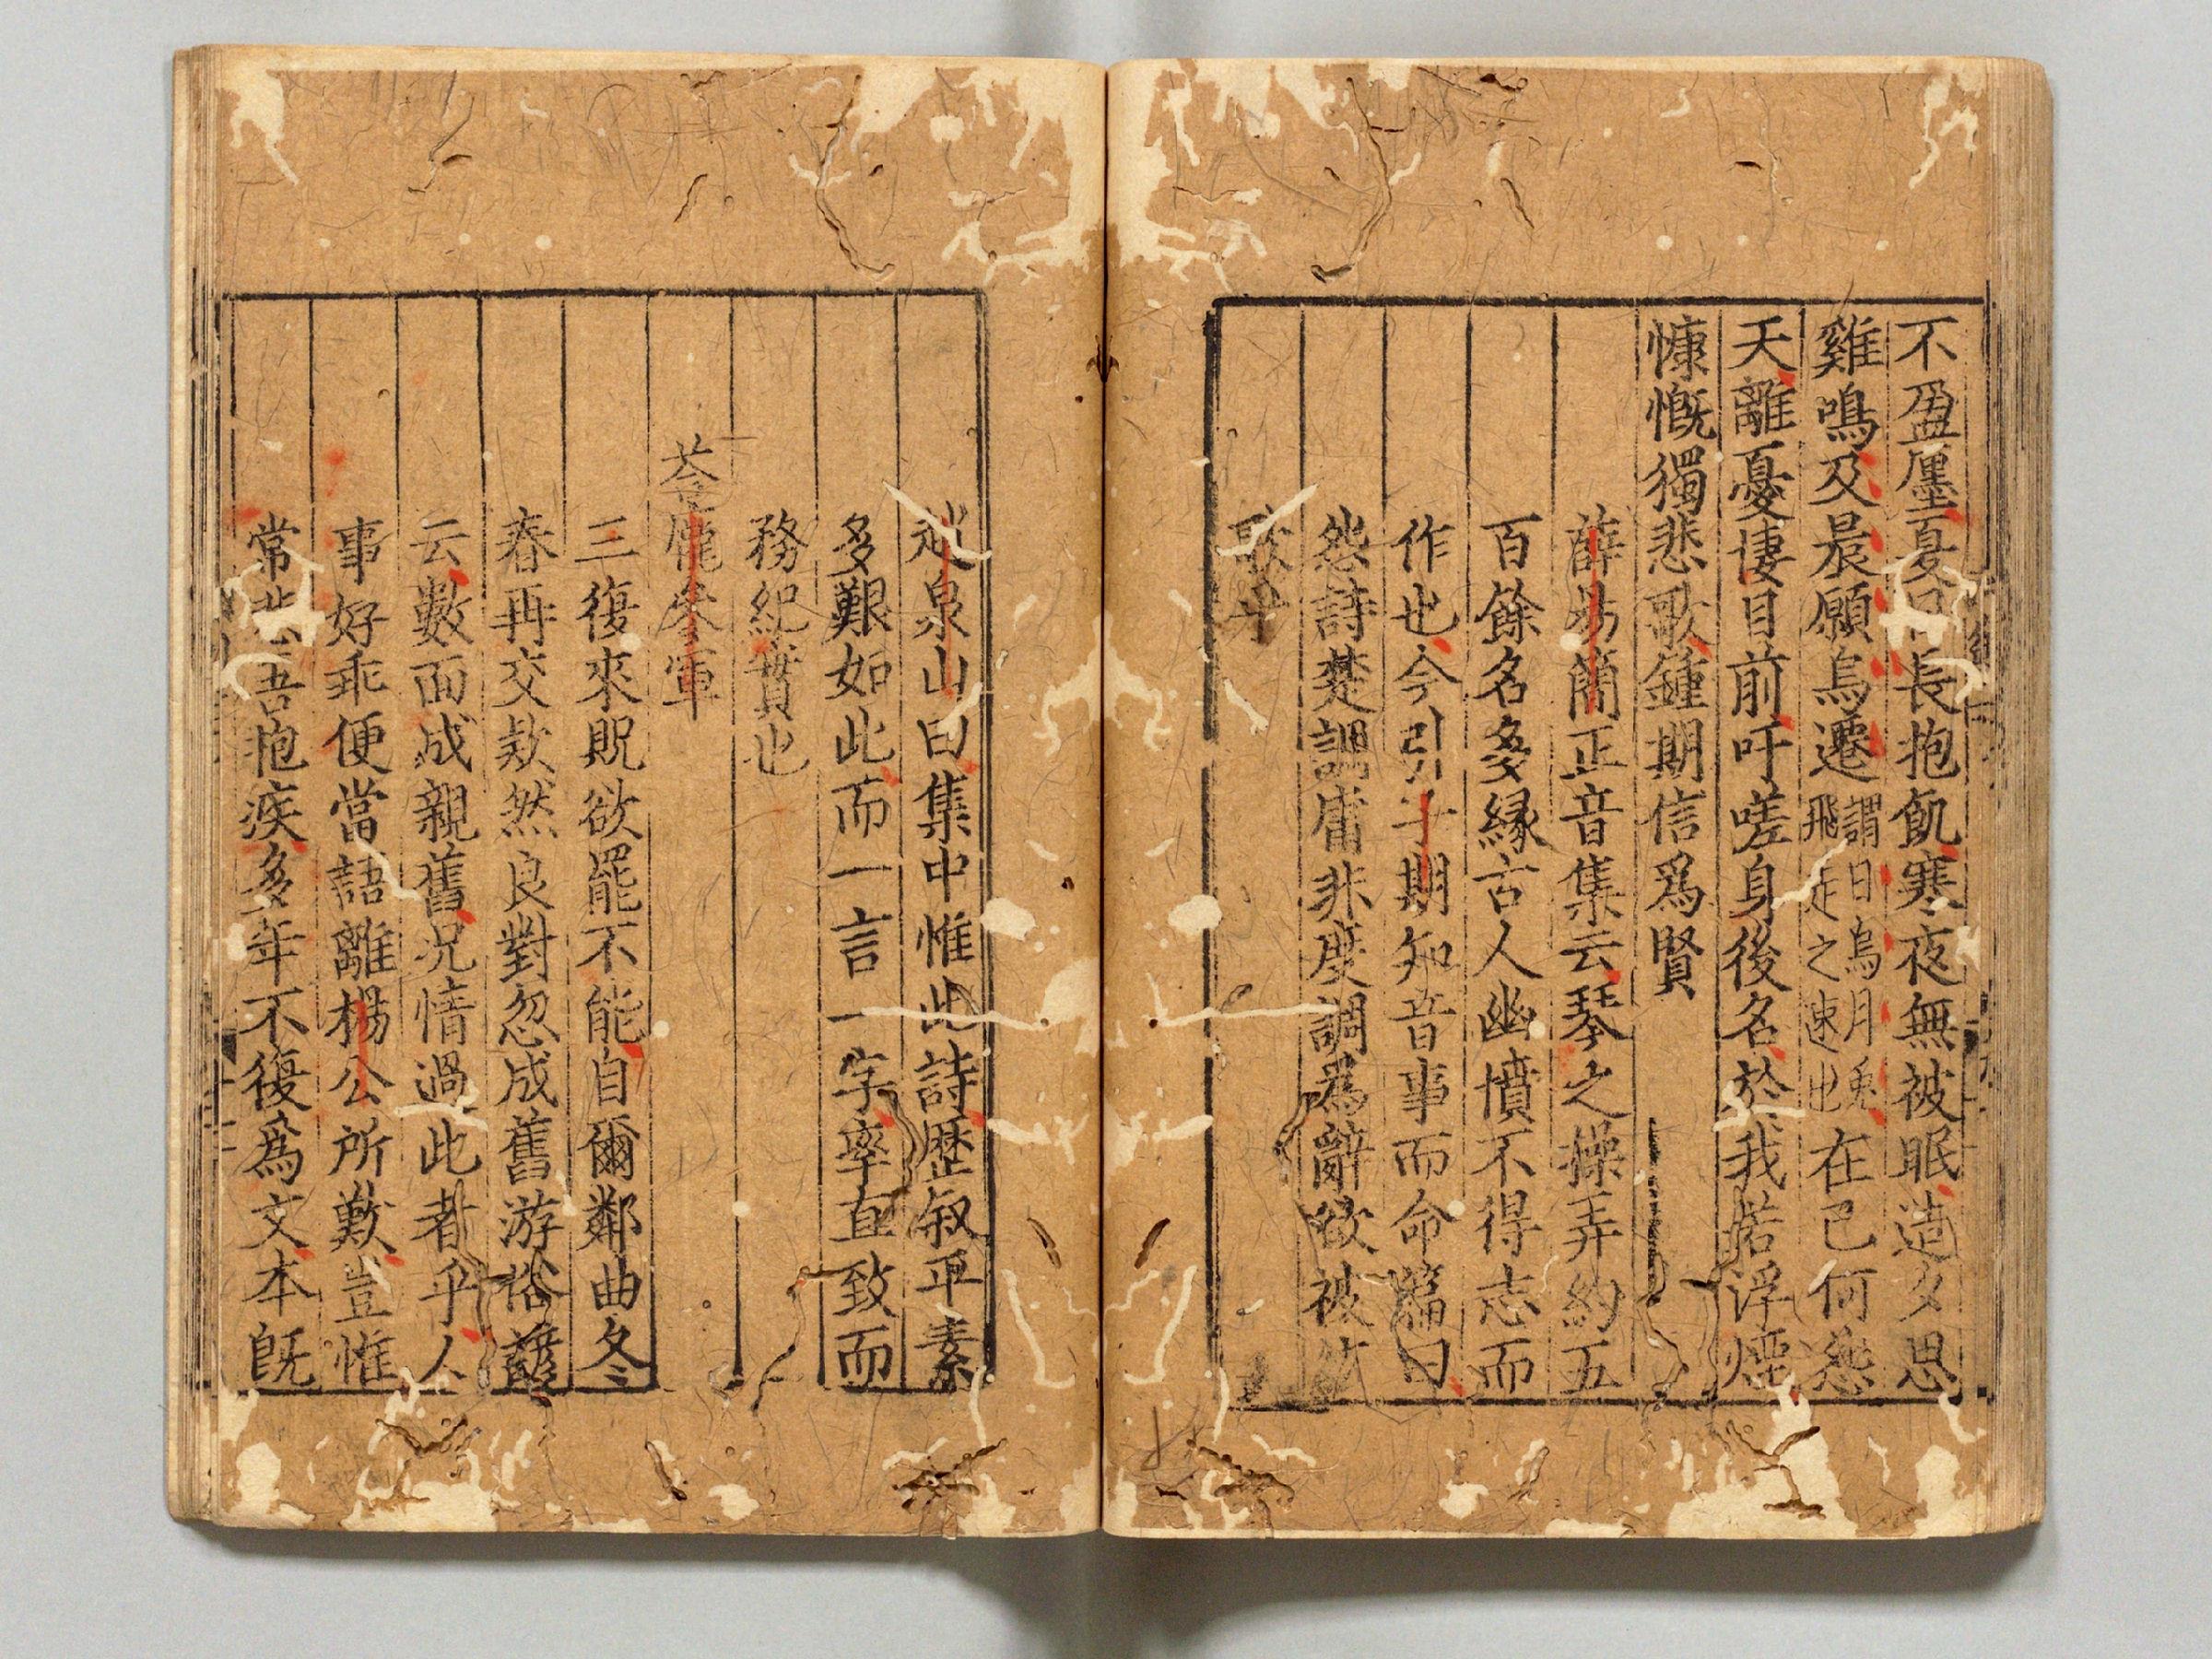 不盈廛夏日長抱飢寒夜無被眠造夕思
雞鳴及晨願烏遷謂日烏月兔飛走之速也在己何怨
天離憂悽目前吁嗟身後名於我若浮煙
慷慨獨悲歌鍾期信爲賢
薛易簡正音集云琴之操弄約五
百餘名多緣古人幽憤不得志而
作也今引子期知音事而命篇曰
怨詩楚調庸非度調爲辭欲被絃
歌乎
趙泉山曰集中惟此詩歷叙平素
多艱如此而一言一字率直致而
務紀實也
荅龐參軍
三復來貺欲罷不能自爾鄰曲冬
春再交欵然良對忽成舊游俗諺
云數面成親舊况情過此者乎人
事好乖便當語離楊公所歎豈惟
常悲吾抱疾多年不復爲文本旣